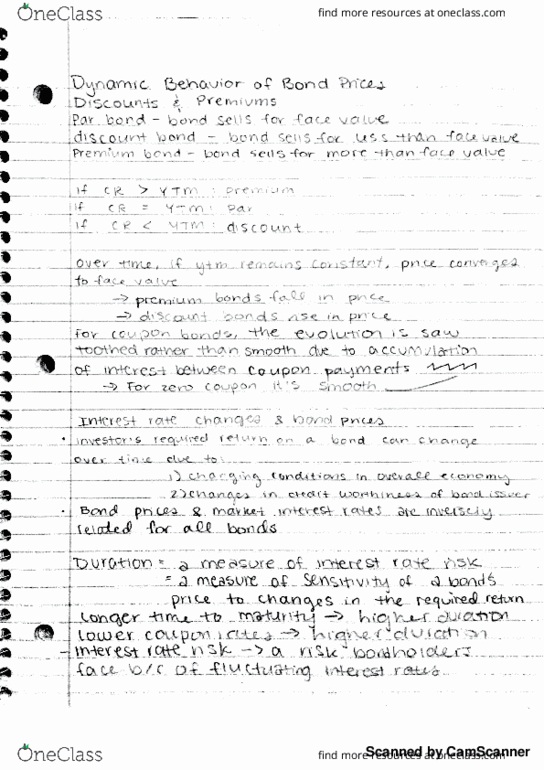 OneClass
find more resources at oneclass.com
Dynamic Behavior of Bond Prices
Discounts & Premiums
Par bond - bond sells for face value
discount bond - bond sells for less than face value
Premium bond - bond sells for more than face value
if CR > YTM : premium
if CR = YTM : par
if CR < YTM : discount
over time, if ytm remains constant, price converges
to face value
→ premium bonds fall in price
→ discount bonds rise in price
for coupon bonds, the evolution is saw
toothed rather than smooth due to accumulation
of interest between coupon payments
→ For zero coupon it's smooth
Interest rate changes & bond prices
• investor's required return on a bond can change
over time due to:
1) changing conditions in overall economy
2) changes in credit worthiness of bond issuer
• Bond prices & market interest rates are inversely
related for all bonds
Duration = a measure of interest rate risk
= a measure of sensitivity of a bonds
price to changes in the required return
longer time to maturity → higher duration
lower coupon rates → higher duration
- interest rate risk → a risk bondholders
face b/c of fluctuating interest rates
OneClass
find more resources at oneclass.com
Scanned by CamScanner